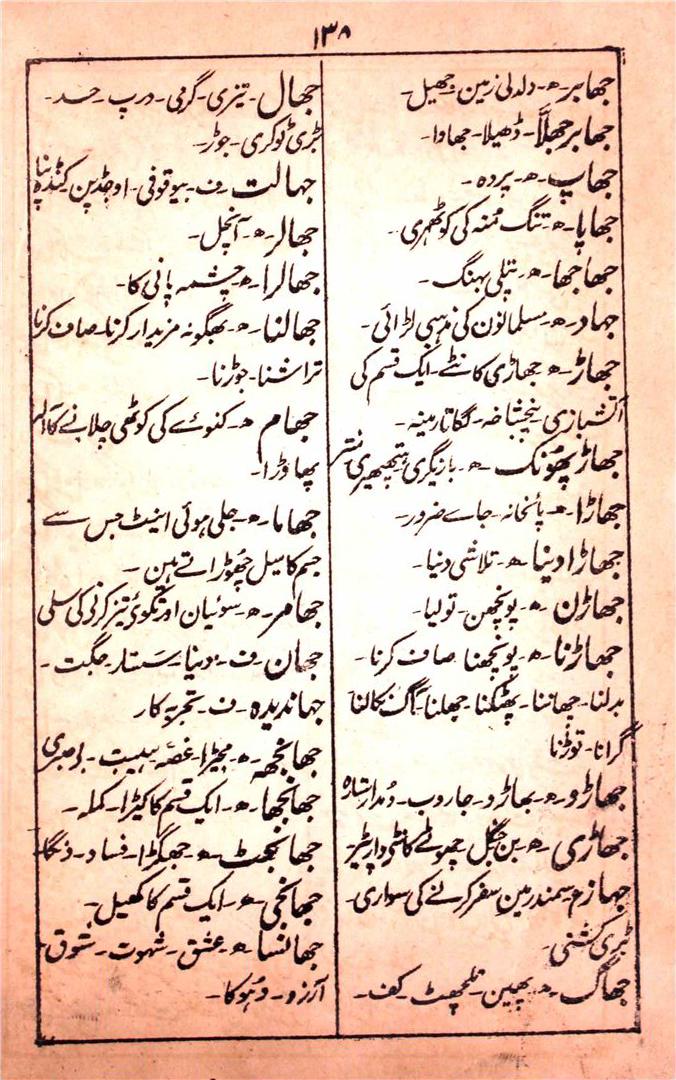 ۱۳۸
جھابر-ھ- دلدلی زمین- جھیل-
جھابر جھلّا- ڈھیلا- جھاوا-
جھاپ-ھ- پردہ-
جھاپا-ھ- تنگ مُنہ کی کوٹھری-
جھاجھا-ھ- تپلی بہنگ-
جہاد-ھ- مسلمانون کی مذہبی لڑائی-
جھاڑ-ھ- جھاڑی کانٹے- ایک قسم کی
آتشبازی پنچشاخہ- لگاتار مینہ-
جھاڑ پھونک-ھ- بازیگری منتر
جھاڑا-ھ- پائخانہ- جاے ضرور-
جھاڑا دینا-ھ- تلاشی دنیا-
جھاڑن-ھ- پونچھن- تولیا-
جھاڑنا-ھ- پونچھنا صاف کرنا-
بدلنا- چھاننا- پھٹکنا- چھلنا- آگ نکالنا
گرانا- توڑنا
جھاڑو-ھ- بھاڑو- جاروب- دُمدار ستارہ
جھاڑی-ھ- بن جنگل چھوٹے کانٹے دار پیڑ-
جہاز-ع- سمندر مین سفر کرنے کی سواری-
بڑی کشتی-
جھاگ-ھ- پھین- تلچھٹ- کف-
جھال- تیزی- گرمی- درپ- حسد-
بڑی ٹوکری- جوڑ-
جہالت-ف- بیوقوفی- اوجڈپن
جھالر-ھ- آنچل-
جھالرا-ھ- چشمہ پانی کا-
جھالنا-ھ- بھگونہ مزیدار کرنا- صاف کرنا
تراشنا- جوڑنا-
جھام-ھ- کنوئے کی کوٹھی چلانے کا آلہ
پھاوڑا-
جھاما-ھ- جلی ہوئی اینٹ جس سے
جسم کا میل چھوڑاتے ہین-
جھامر-ھ- سوئیان اور تکوئ تیز کرنی کی سلی
جھان-ف- دنیا- سنسار- جگت-
جہاندیدہ-ف- تجربہ کار
جھانجھہ-ھ- مجیرا- غصّہ ہیبت- بے صبری
جھانجھا-ھ- ایک قسم کا کیڑا- کملہ-
جھانجھٹ-ھ- جھگڑا- فساد- دنگا-
جھانجی-ھ- ایک قسم کا کھیل-
جھانسا-ھ- عشق- شہوت- شوق-
آرزو- دہوکا-